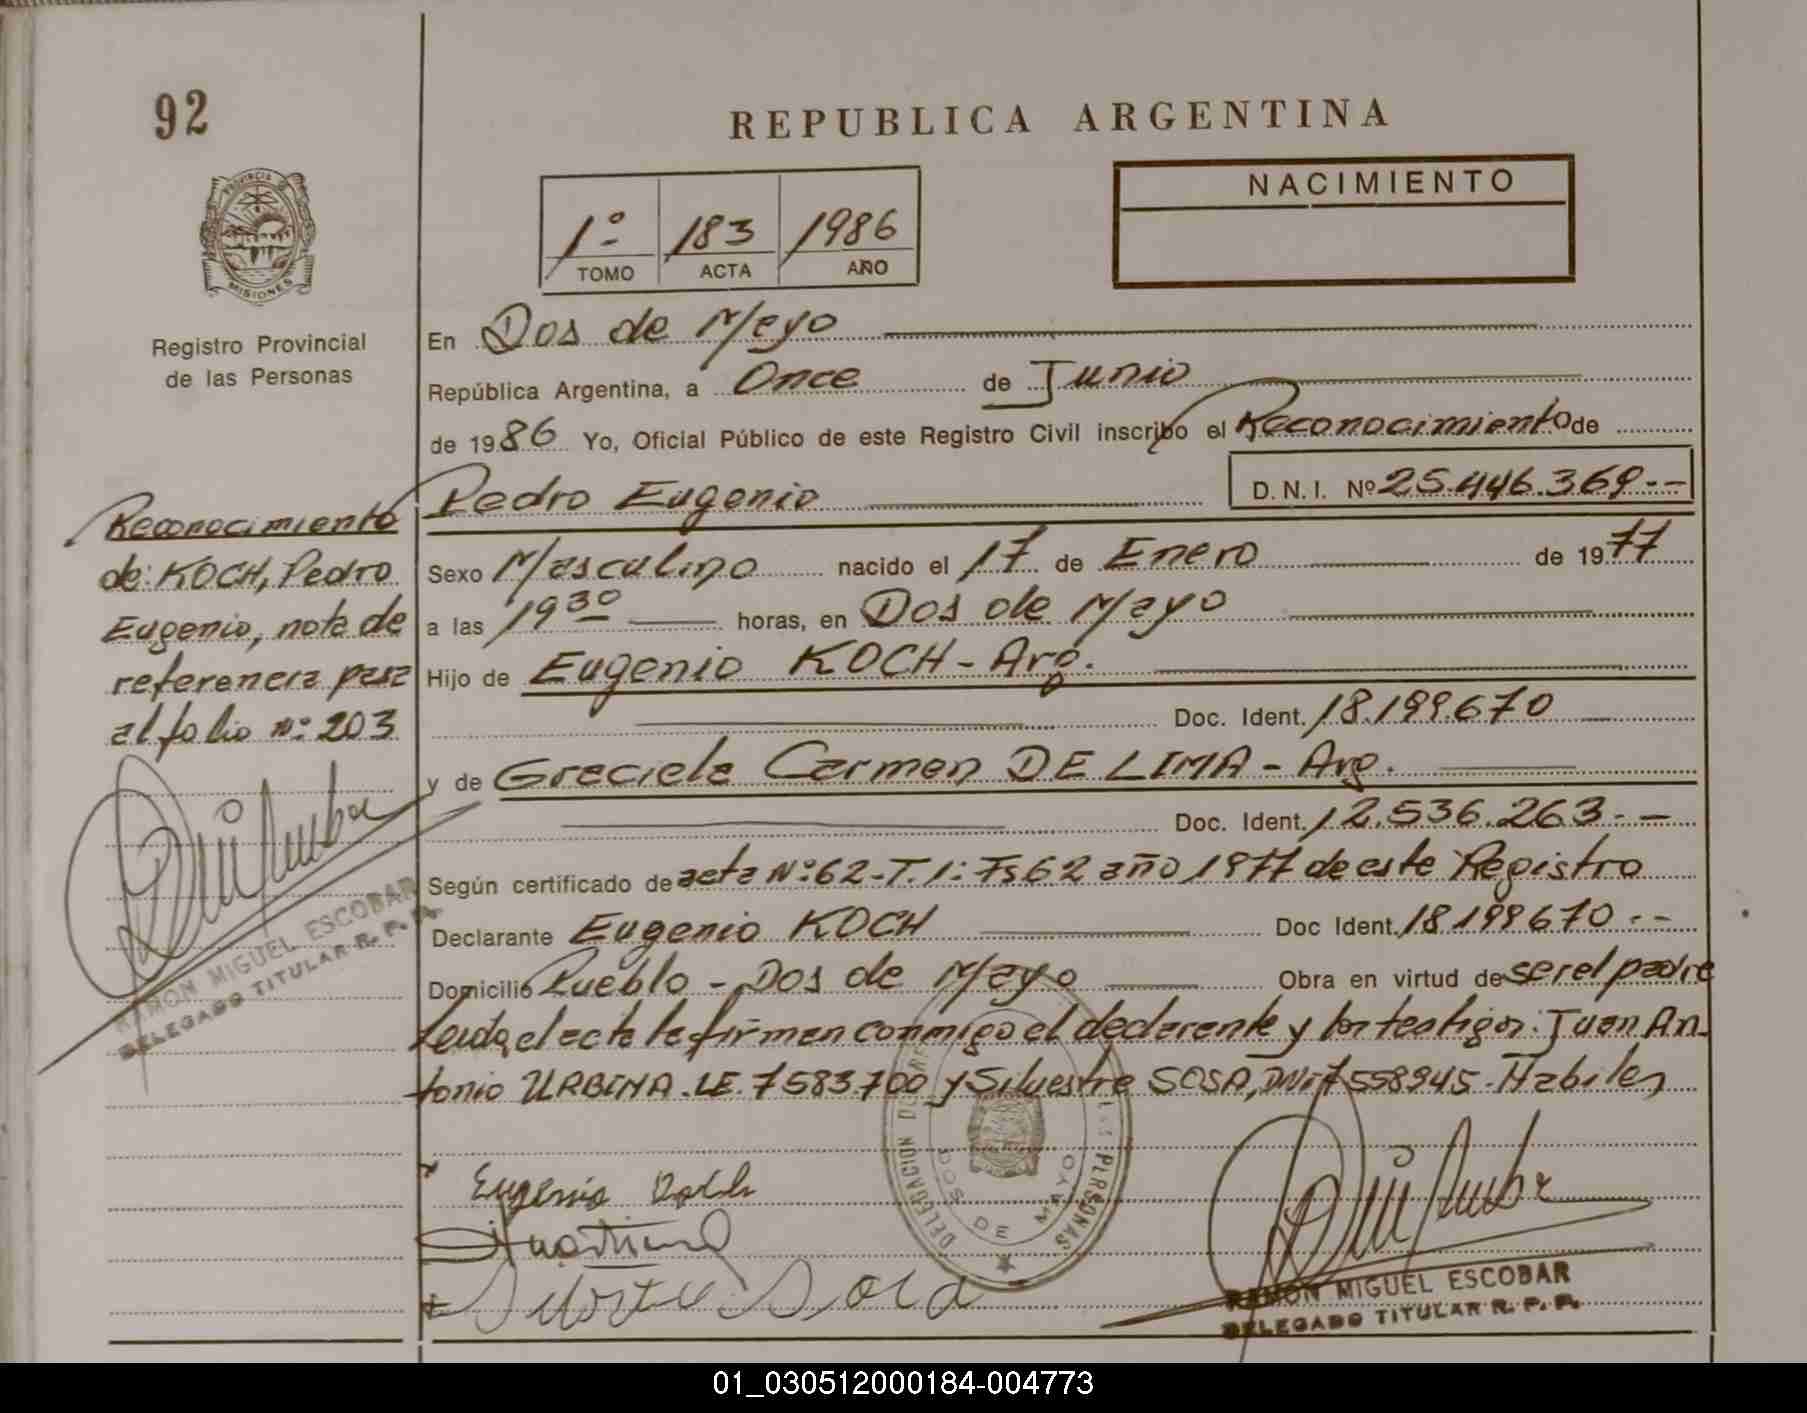 92
REPUBLICA ARGENTINA
PROVINCIA DE
MISIONES
Registro Provincial
de las Personas
1º 183 1986
TOMO ACTA AÑO
NACIMIENTO
En Dos de Mayo
República Argentina, a Once de Junio
de 1986 Yo, Oficial Público de este Registro Civil inscribo el Reconocimiento de
Pedro Eugenio D. N. I. Nº 25.446.369.--
Sexo Masculino nacido el 17 de Enero de 1977
a las 19 30 horas, en Dos de Mayo
Hijo de Eugenio KOCH - Arg.
Doc. Ident. 18.199.670
y de Graciela Carmen DE LIMA - Arg.
Doc. Ident. 12.536.263.--
Según certificado de acta Nº 62-T.1: Fs 62 año 1977 de este Registro
Declarante Eugenio KOCH Doc Ident. 18199670.--
Domicilio Pueblo - Dos de Mayo Obra en virtud de ser el padre
Leida el acta la firman conmigo el declarante y los testigos: Juan An-
tonio URBINA. LE. 7583.700 y Silvestre SOSA, DNI: 7558945. Habiles
Reconocimiento
de: KOCH, Pedro
Eugenio, nota de
referencia pasa
al folio nº: 203
RAMON MIGUEL ESCOBAR
DELEGADO TITULAR R. P. P.
Eugenio Koch
Silvestre Sosa
DELEGACION DE REG LAS PERSONAS
DOS DE MAYO
RAMON MIGUEL ESCOBAR
DELEGADO TITULAR R. P. P.
01_030512000184-004773